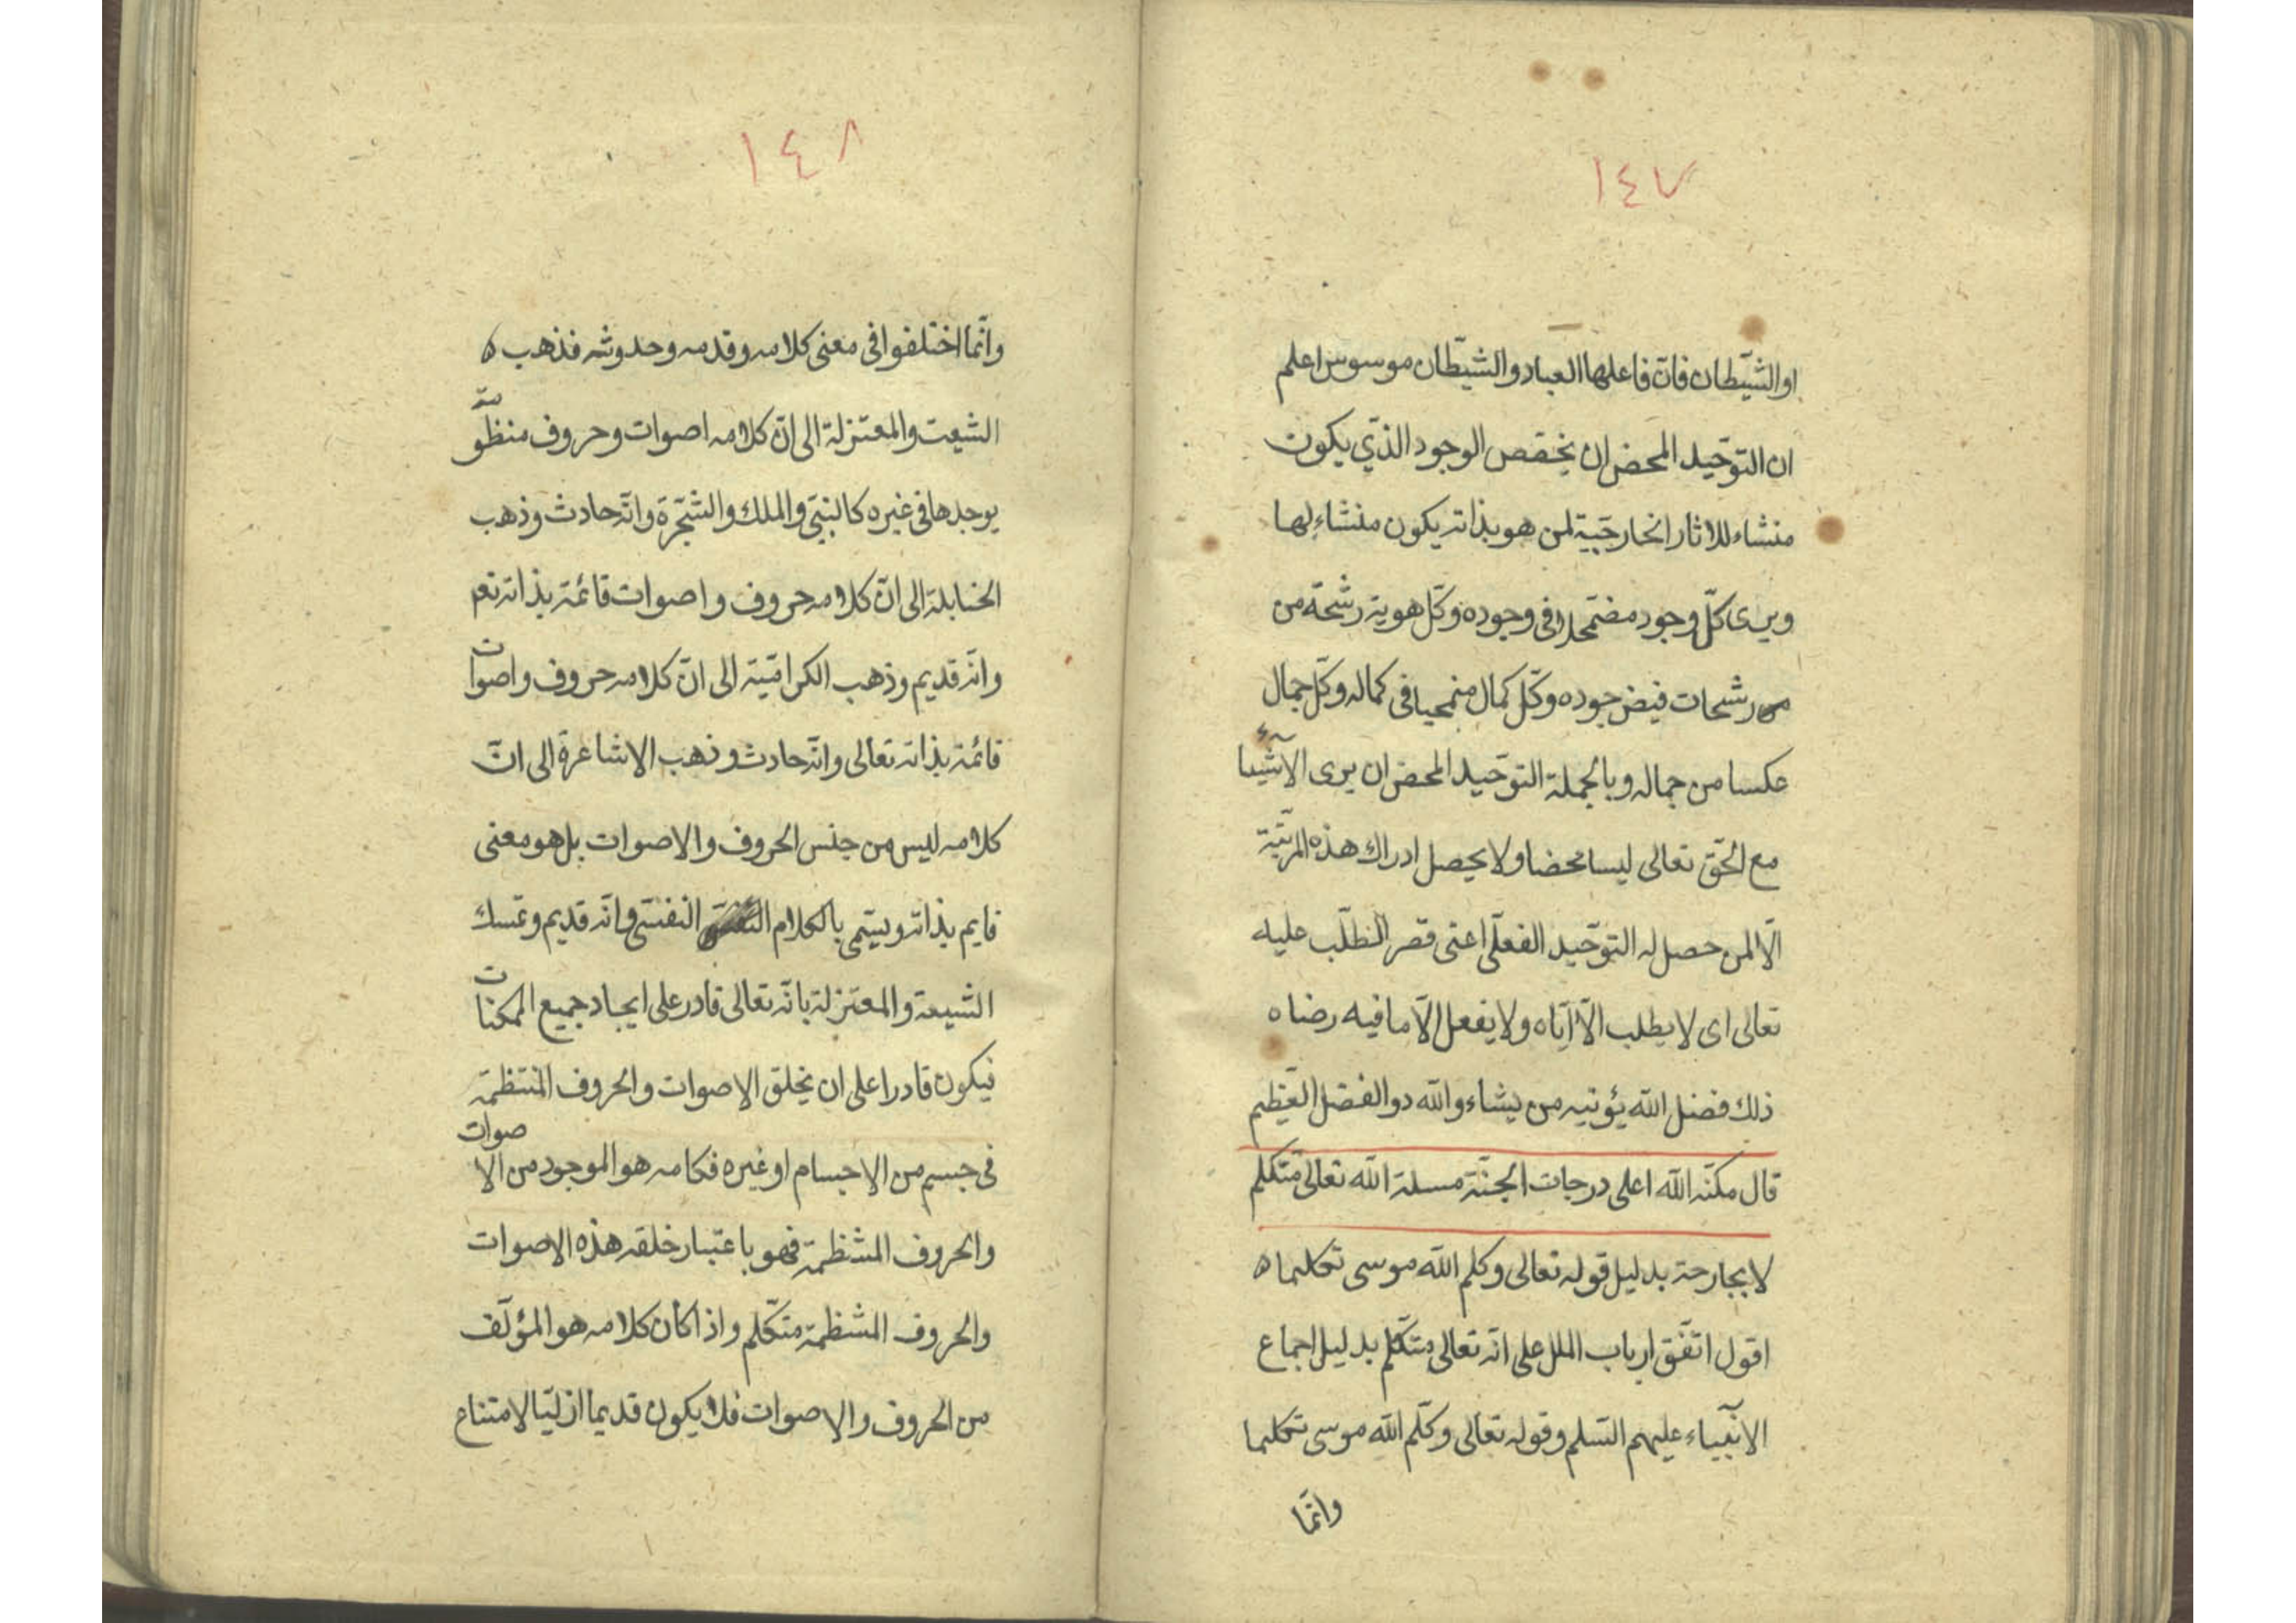 ١٤٧
او الشيطان فان فاعلها العباد والشيطان موسوس اعلم
ان التوحيد المحض ان يخصص الوجود الذي يكون
منشاء للاثار الخارجية لمن هو بذاته يكون منشاء لها
ويرى كل وجود مضمحلا في وجوده وكل هوية رشحة من
رشحات فيض جوده وكل كمال منمحيا في كماله وكل جمال
عكسا من جماله وبالجملة التوحيد المحض ان يرى الاشياء
مع الحق تعالى ليسا محضا ولا يحصل ادراك هذه المرتبة
الا لمن حصل له التوحيد الفعلي اعنى قصر الطلب عليه
تعالى اى لا يطلب الا اياه ولا يفعل الا ما فيه رضاه
ذلك فضل الله يؤتيه من يشاء والله ذو الفضل العظيم
قال مكنه الله اعلى درجات الجنة مسلة الله تعالى متكلم
لا بجارحة بدليل قوله تعالى وكلم الله موسى تكليما ه
اقول اتفق ارباب الملل على انه تعالى متكلم بدليل اجماع
الانبياء عليهم السلم وقوله تعالى وكلم الله موسى تكليما
وانما
١٤٨
وانما اختلفوا في معنى كلامه وقدمه وحدوثه فذهب ه
الشيعة والمعتزلة الى ان كلامه اصوات وحروف منظومة
يوجدها في غيره كالنبي والملك والشجرة وانه حادث وذهب
الحنابلة الى ان كلامه حروف واصوات قائمة بذاته تعم
وانه قديم وذهب الكرامية الى ان كلامه حروف واصوات
قائمة بذاته تعالى وانه حادث وذهب الاشاعرة الى ان
كلامه ليس من جنس الحروف والاصوات بل هو معنى
قايم بذاته ويسمى بالكلام النفسى وانه قديم وتمسك
الشيعة والمعتزلة بانه تعالى قادر على ايجاد جميع الممكنات
فيكون قادرا على ان يخلق الاصوات والحروف المنتظمة
فى جسم من الاجسام او غيره فكامه هو الموجود من الاصوات
والحروف المنتظمة فهو باعتبار خلقه هذه الاصوات
والحروف المنتظمة متكلم واذا كان كلامه هو المؤلف
من الحروف والاصوات فلا يكون قديما ازليا لامتناع